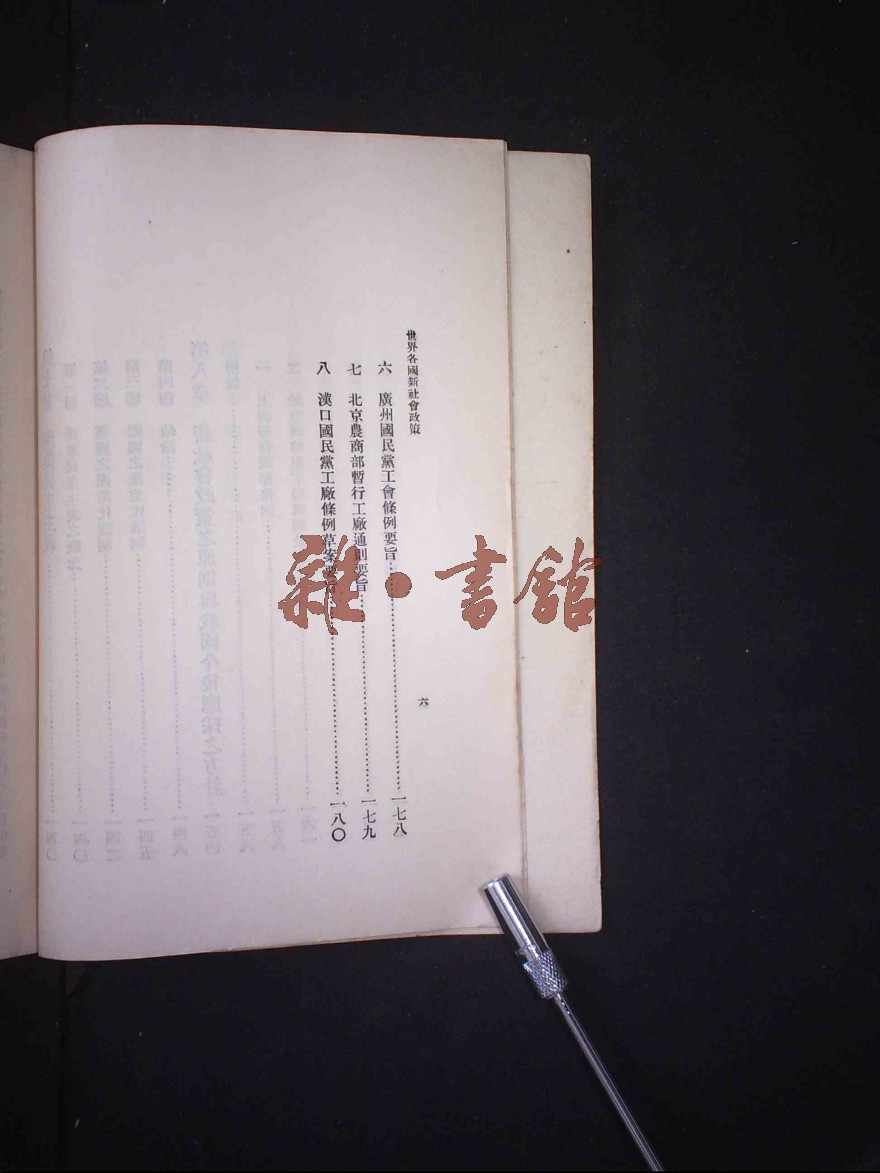 世界各國新社會政策
六　廣州國民黨工會條例要旨……一七八
七　北京農商部暫行工廠通則要旨……一七九
八　漢口國民黨工廠條例草案要旨……一八〇
六
雜・書館